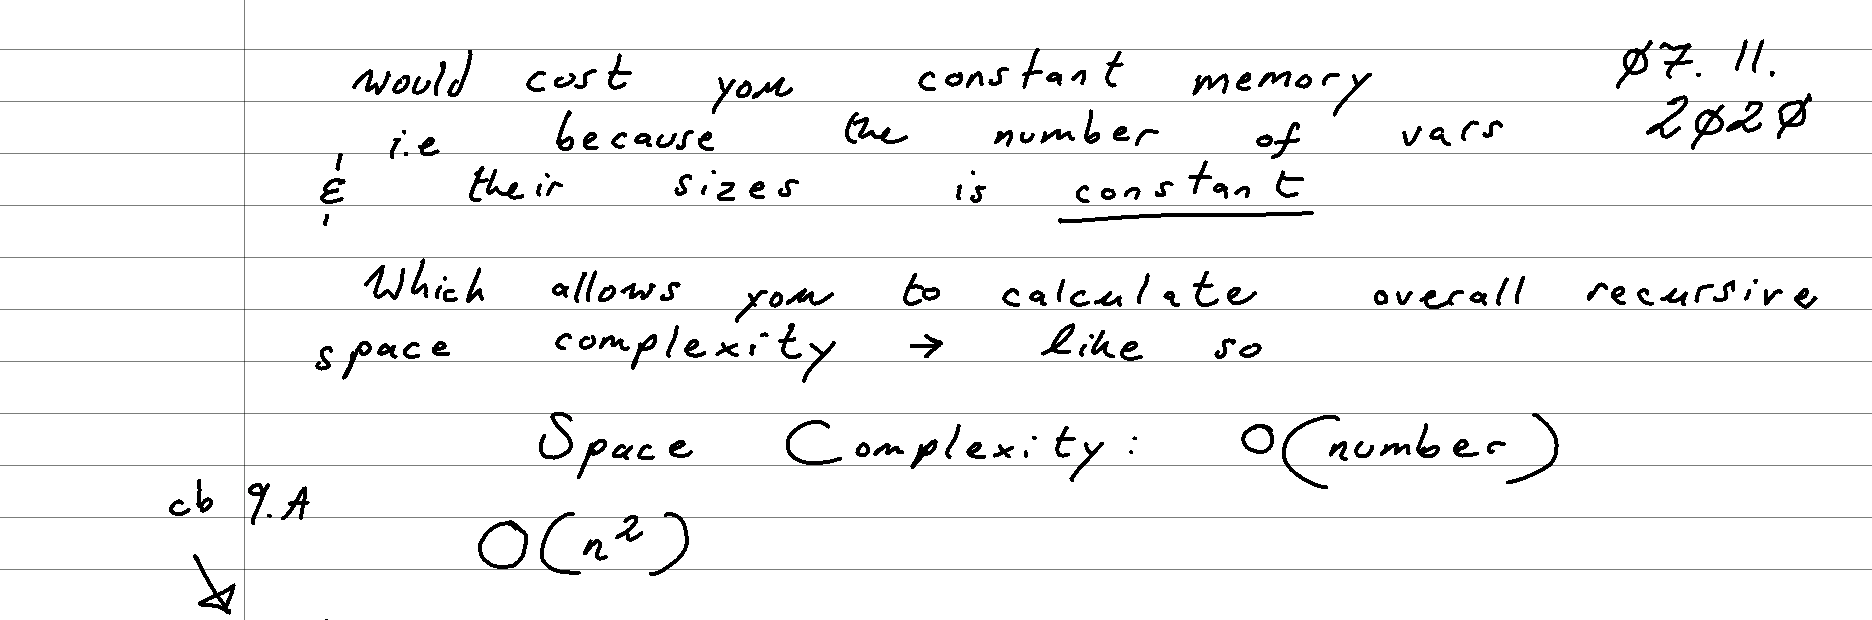 would cost you constant memory ø7. 11.
i.e because the number of vars 2ø2ø
& their sizes is constant
Which allows you to calculate overall recursive
space complexity → like so
Space Complexity: O(number)
cb 9.A
O(n²)